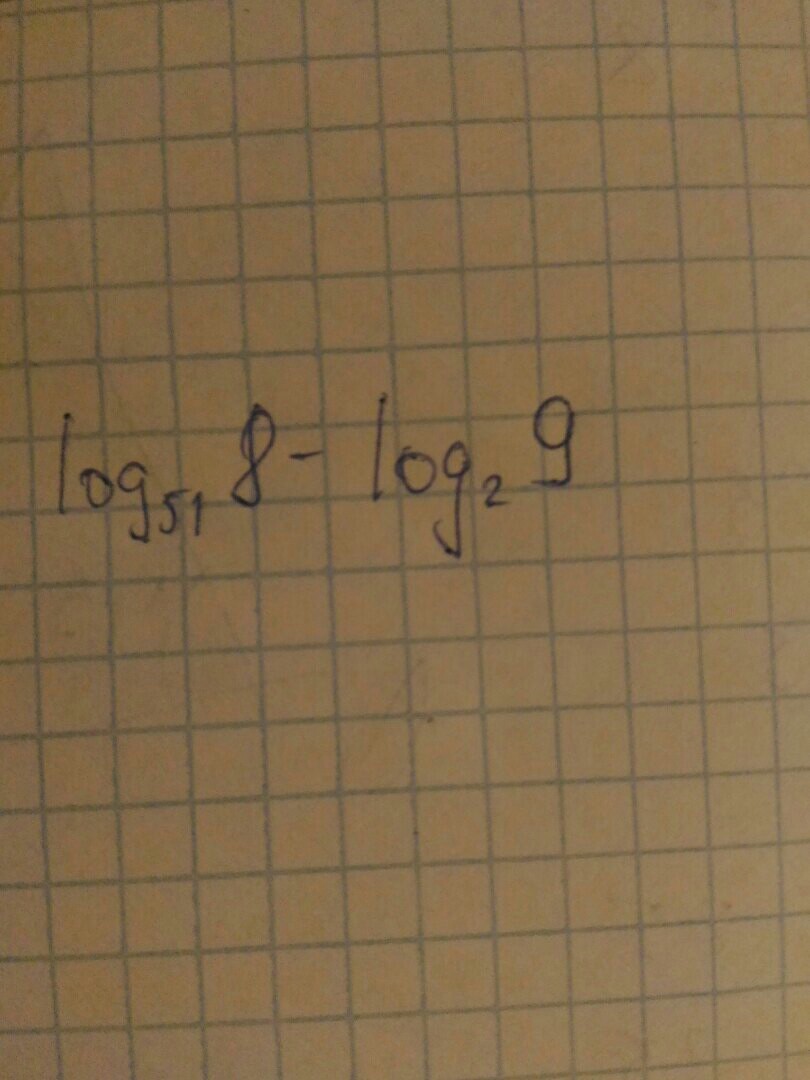 log₅₁ 8 - log₂ 9